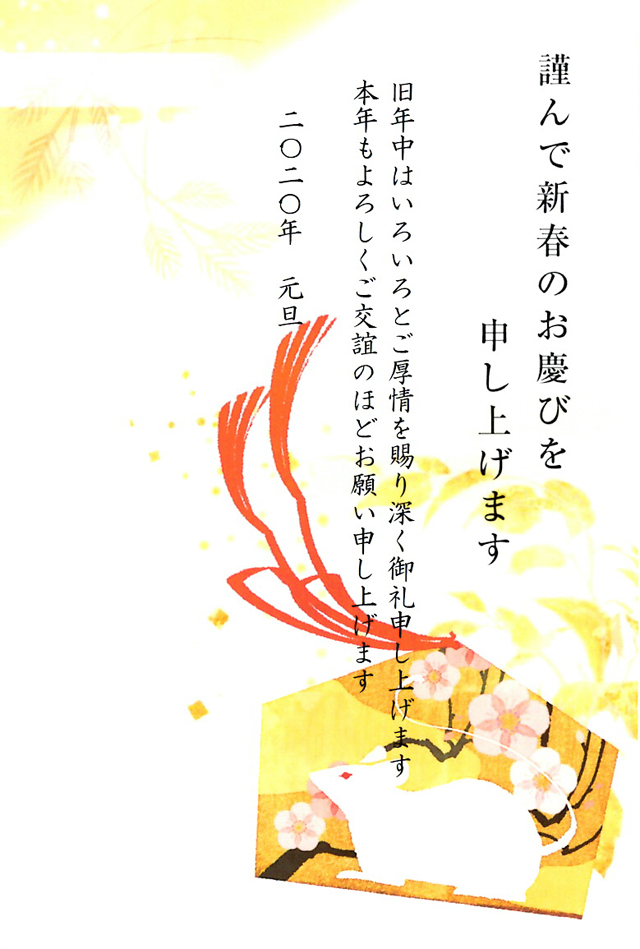 謹んで新春のお慶びを
申し上げます
旧年中はいろいろとご厚情を賜り深く御礼申し上げます
本年もよろしくご交誼のほどお願い申し上げます
二〇二〇年　元旦